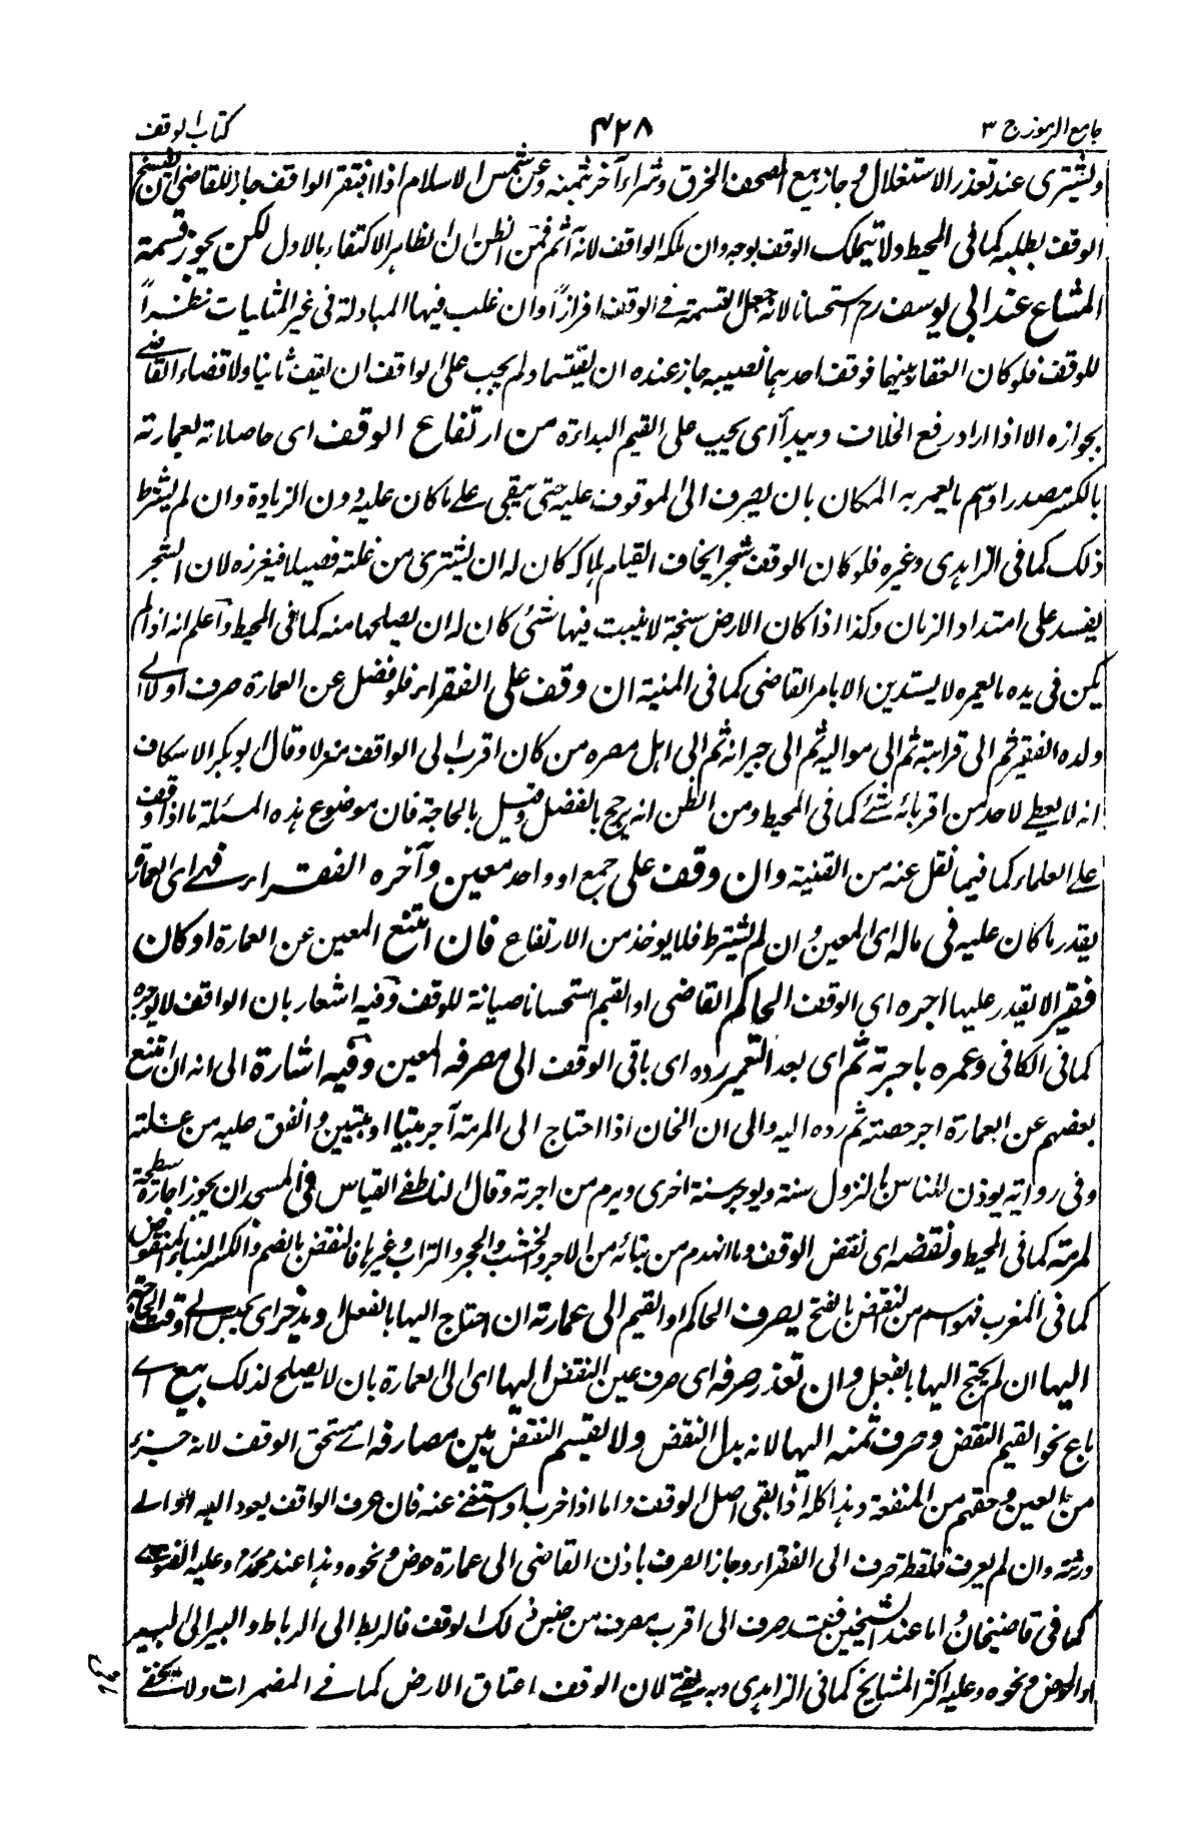 جامع الرموز ج ٣
٤٢٨
كتاب الوقف
ويشترى عند تعذر الاستغلال وجاز بيع المصحف الخرق وشراء آخر بثمنه وعن شمس الاسلام اذا افتقر الواقف جاز للقاضى ان يفسخ
الوقف بطلبه كما فى المحيط ولا يتملك الوقف بوجه وان ملكه الواقف لانه آثم فمن الظن ان الظاهر الاكتفاء بالاول لكن يجوز قسمة
المشاع عند ابى يوسف رح استحسانا لانه جعل القسمة فى الوقف افرازًا وان غلب فيها المبادلة فى غير المثليات نظرًا
للوقف فلو كان العقار بينهما فوقف احدهما نصيبه جاز عنده ان يقتسما ولم يجب على الواقف ان يقف ثانيا ولا قضاء القاضى
بجوازه الا اذا اراد رفع الخلاف ويبدأ اى يجب على القيم البداءة من ارتفاع الوقف اى حاصلاته لعمارته
بالكسر مصدر او اسم ما يعمر به المكان بان يصرف الى الموقوف عليه حتى يبقى على ما كان عليه دون الزيادة وان لم يشترط
ذلك كما فى الزاهدى وغيره فلو كان الوقف شجرا يخاف القيام هلاكه كان له ان يشترى من غلته فصيلا فيغرزه لان الشجر
يفسد على امتداد الزمان وكذا اذا كان الارض سبخة لا ينبت فيها شئ كان له ان يصلحها منه كما فى المحيط واعلم انه اذا لم
يكن فى يده ما يعمره لا يستدين الا بامر القاضى كما فى المنية ان وقف على الفقراء فلو فضل عن العمارة صرف اولا الى
ولده الفقير ثم الى قرابته ثم الى مواليه ثم الى جيرانه ثم الى اهل مصره من كان اقرب الى الواقف منزلا وقال ابو بكر الاسكاف
انه لا يعطى لاحد من اقربائه شئ كما فى المحيط ومن الظن انه يرجح بالفضل وقيل بالحاجة فان موضوع هذه المسئلة ما اذا وقف
على العلماء كما فيما نقل عنه من القنية وان وقف على جمع او واحد معين وآخره الفقراء فهى اى العمارة
بقدر ما كان عليه فى ماله اى المعين وان لم يشترط فلا يوخذ من الارتفاع فان امتنع المعين عن العمارة او كان
فقيرا لا يقدر عليها اجره اى الوقف الحاكم القاضى او القيم استحسانا صيانة للوقف وفيه اشعار بان الواقف لا يوجره
كما فى الكافى وعمره باجرته ثم اى بعد التعمير رده اى باقى الوقف الى مصرفه المعين وفيه اشارة الى انه ان امتنع
بعضهم عن العمارة اجر حصته ثم رده اليه والى ان الخان اذا احتاج الى المرمة آجر بيتا او بيتين وانفق عليه من غلته
وفى رواية يوذن للناس بالنزول سنة ويوجر سنة اخرى ويرم من اجرته وقال الناطفى القياس فى المسجد ان يجوز اجارة سطحه
لمرمته كما فى المحيط ونقضه اى نقض الوقف وما انهدم من بنائه من الاجر والخشب والحجر والتراب وغيرها فالنقض بالضم والكسر البناء المنقوض
كما فى المغرب فهو اسم من النقض بالفتح يصرف الحاكم او القيم الى عمارته ان احتاج اليها بالفعل ويدخر اى يحبس الى وقت الحاجة
اليها ان لم يحتج اليها بالفعل وان تعذر صرفه اى صرف عين النقض اليها اى الى العمارة بان لا يصلح لذلك بيع اى
باع نحو القيم النقض وصرف ثمنه اليها لانه بدل النقض ولا يقسم النقض بين مصارفه اى مستحق الوقف لانه جزء
من العين وحقهم من المنفعة وهذا كله اذا بقى اصل الوقف واما اذا خرب او استغنى عنه فان عرف الواقف يعود اليه او الى
ورثته وان لم يعرف فلقطة صرف الى الفقراء وجاز الصرف باذن القاضى الى عمارة حوض ونحوه وهذا عند محمد رح وعليه الفتوى
كما فى قاضيخان واما عند الشيخين فيصرف الى اقرب مصرف من جنس ذلك الوقف فالربط الى الرباط والبير الى البير
او الحوض ونحوه وعليه اكثر المشايخ كما فى الزاهدى وبه يفتى لان الوقف اعتاق الارض كما فى المضمرات ولا يخفى